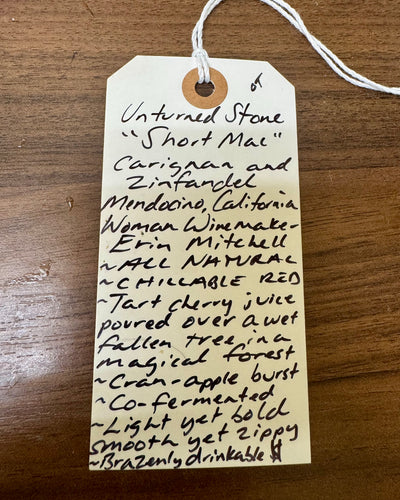 OT
Unturned Stone
"Short Mac"
Carignan and
Zinfandel
Mendocino, California
Woman Winemaker-
Erin Mitchell
~ALL NATURAL
~CHILLABLE RED
~Tart cherry juice
poured over a wet
fallen tree in a
magical forest
~Cran-apple burst
~Co-fermented
~Light yet bold
smooth yet zippy
~Brazenly drinkable